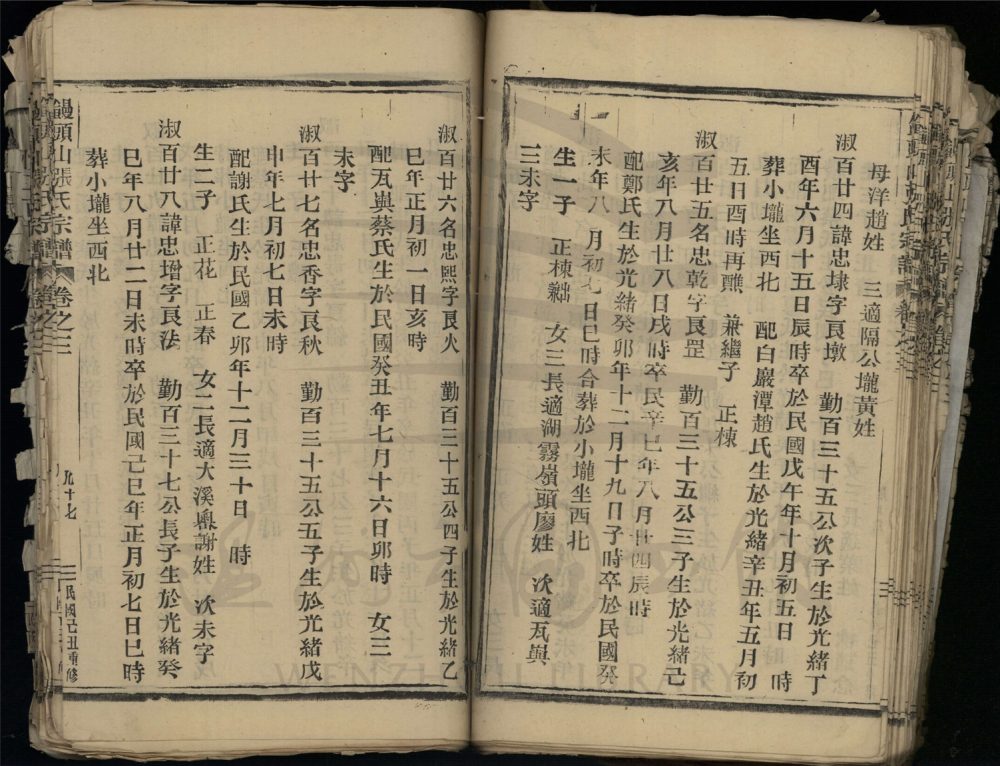 母洋趙姓　三適隔公壠黃姓
淑百廿四諱忠埭字艮墩　勤百三十五公次子生於光緒丁
酉年六月十五日辰時卒於民國戊午年十月初五日　時
葬小壠坐西北　配白巖潭趙氏生於光緒辛丑年五月初
五日酉時再醮　兼繼子　正棟
淑百廿五名忠乾字艮罡　勤百三十五公三子生於光緒己
亥年八月廿八日戌時卒民辛巳年八月廿四辰時
配鄭氏生於光緒癸卯年十二月十九日子時卒於民國癸
未年八月初七日巳時合葬於小壠坐西北
生一子　正棟　女三長適湖霧嶺頭廖姓　次適瓦與
三未字
淑百廿六名忠熙字艮火　勤百三十五公四子生於光緒乙
巳年正月初一日亥時
配瓦與蔡氏生於民國癸丑年七月十六日卯時　女三
未字
淑百廿七名忠香字艮秋　勤百三十五公五子生於光緒戊
申年七月初七日未時
配謝氏生於民國乙卯年十二月三十日　時
生二子　正花　正春　女二長適大溪謝姓　次未字
淑百廿八諱忠增字艮法　勤百三十七公長子生於光緒癸
巳年八月廿二日未時卒於民國己巳年正月初七日巳時
葬小壠坐西北
饅頭山張氏宗譜　卷之三　九十七　民國己丑重修
WENZHOU LIBRARY